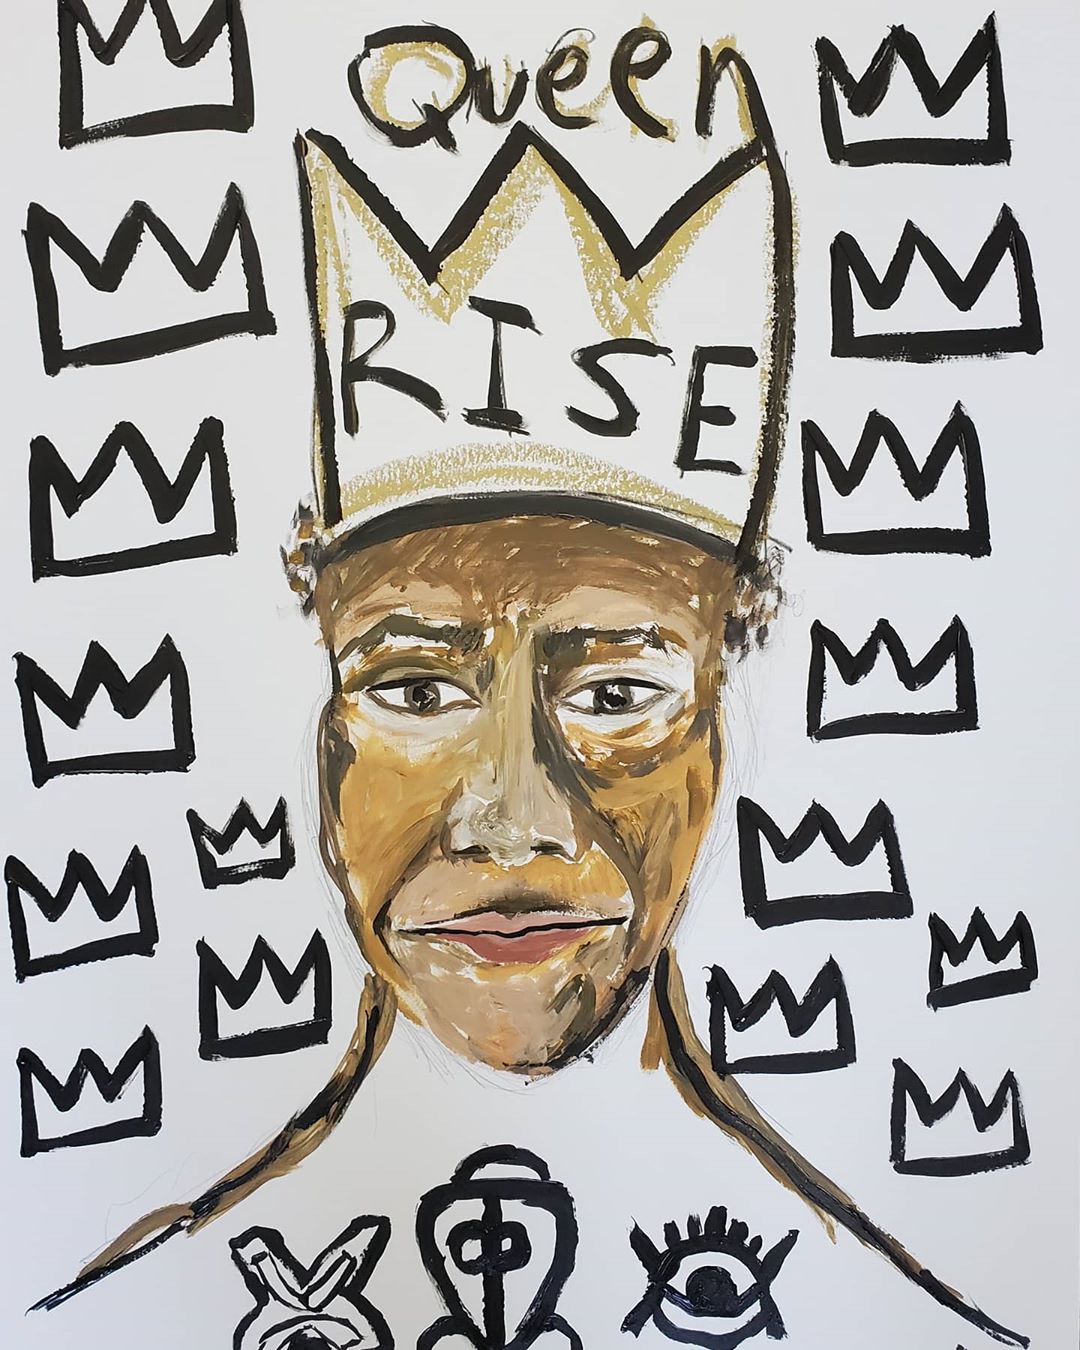 Queen
RISE